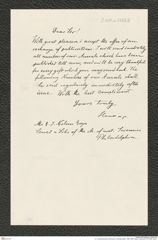 Dear Sir!
With great pleasure I accept the offer of an
exchange of publications. I will send immediately
all numbers of our Annals which have been
published till now, and will be very thankful
for every gift which you may send back. The
following Numbers of our Annals shall
be sent regularly immediately after
issue. With the best compliment
Yours truly,
Mr. E. J. Nolan Esqu.
Philadelphia